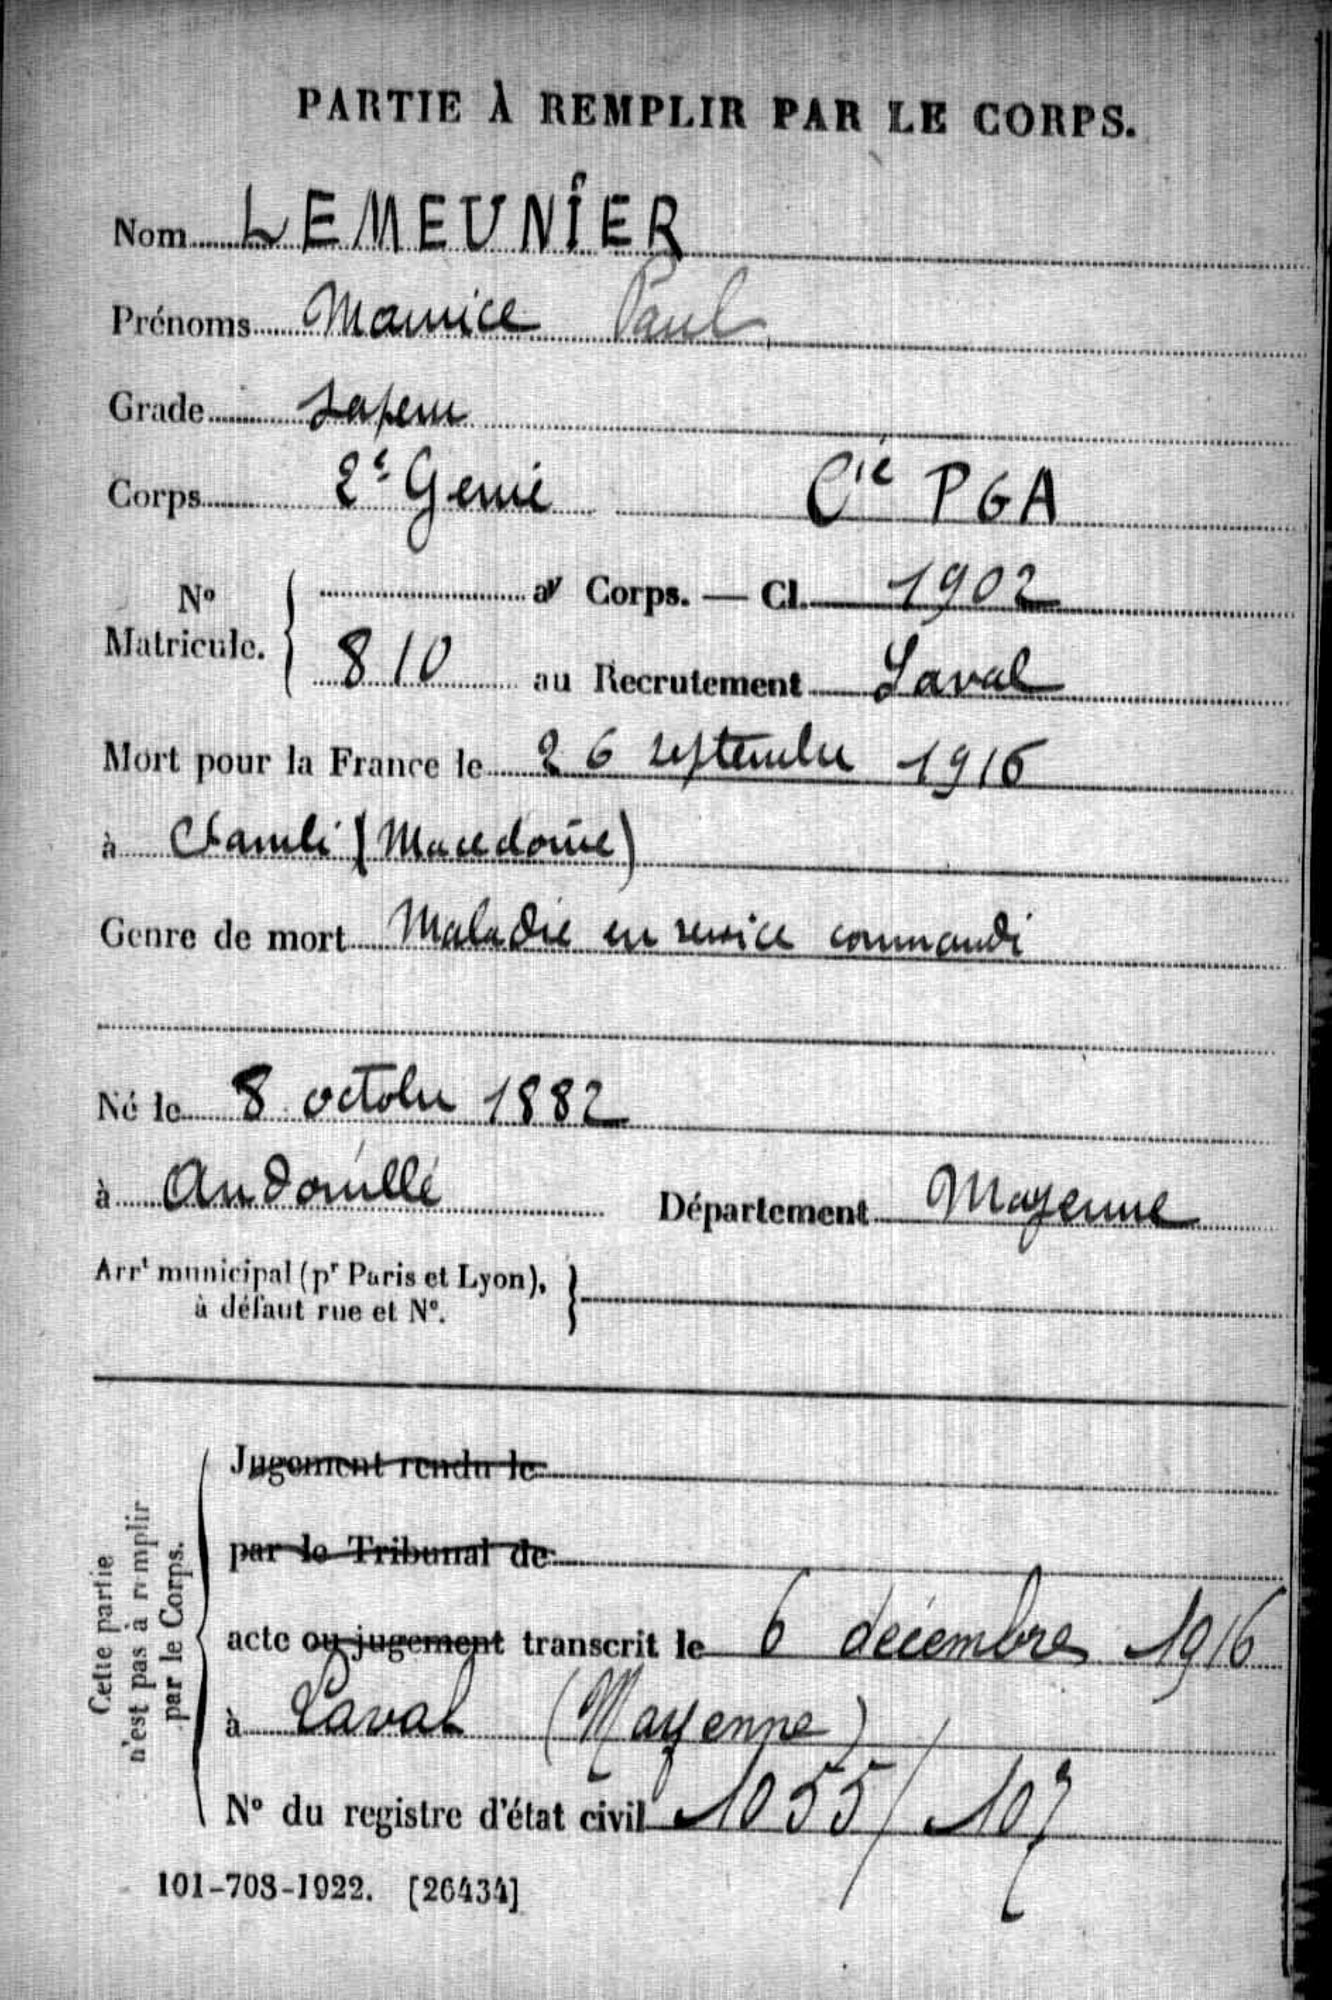 PARTIE À REMPLIR PAR LE CORPS.
Nom LEMEUNIER
Prénoms Maurice Paul
Grade Sapeur
Corps 2e Génie Cie PGA
No Matricule. au Corps. — Cl. 1902
810 au Recrutement Laval
Mort pour la France le 26 septembre 1916
à (Macedoine)
Genre de mort Maladie en service commandé
Né le 8 octobre 1882
à Andouillé Département Mayenne
Arrt municipal (pr Paris et Lyon),
à défaut rue et No.
Cette partie
n'est pas à remplir
par le Corps.
Jugement rendu le
par le Tribunal de
acte ou jugement transcrit le 6 décembre 1916
à Laval (Mayenne)
No du registre d'état civil 1055/107
101-708-1922. [26434]